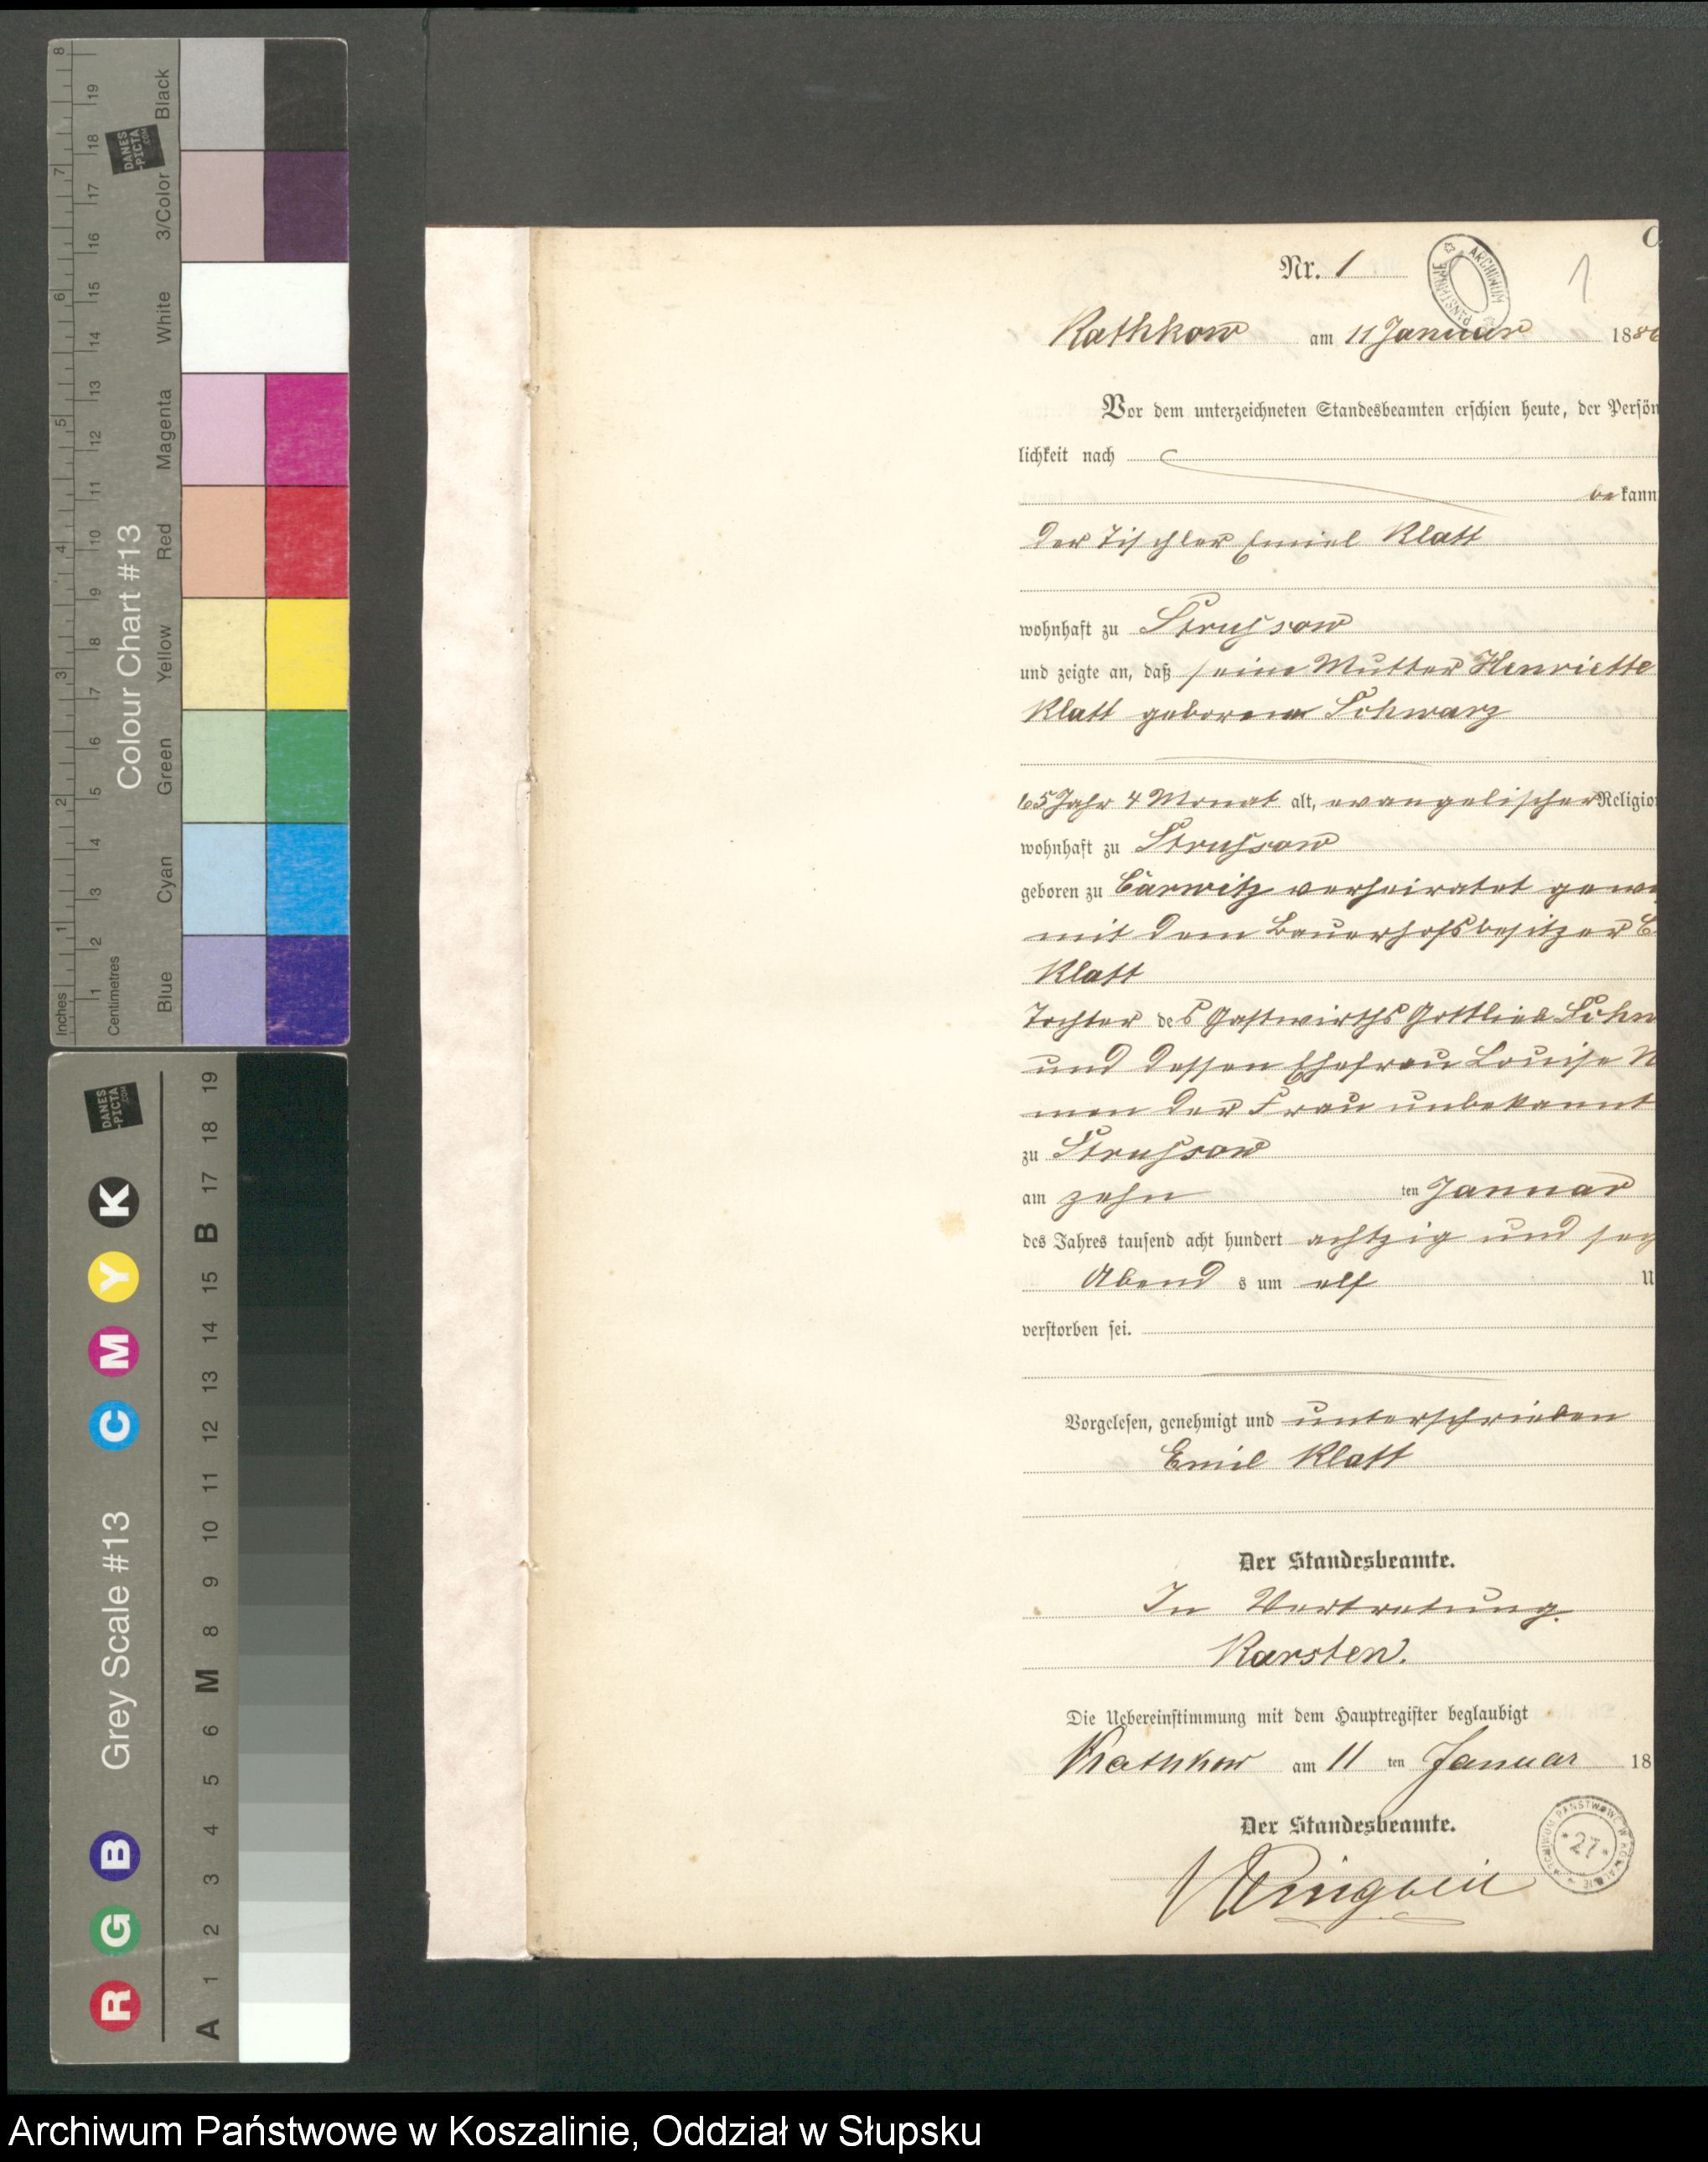 Nr. 1
1
Rathkow am 11 Januar 1886
Vor dem unterzeichneten Standesbeamten erschien heute, der Persön
lichkeit nach
be kann
der Tischler Emiel Klatt
wohnhaft zu Strussow
und zeigte an, daß seine Mutter Henriette
Klatt geborene Schwarz
65 Jahr 4 Monat alt, evangelischer Religio
wohnhaft zu Strussow
geboren zu Bärwitz verheiratet gewe
mit dem Bauerhofsbesitzer
Klatt
Tochter des Gastwirths Gottlieb Schw
und dessen Ehefrau Louise N
men der Frau unbekannt
zu Strussow
am zehn ten Januar
des Jahres tausend acht hundert achtzig und sec
Abend s um elf U
verstorben sei.
Vorgelesen, genehmigt und unterschrieben
Emil Klatt
Der Standesbeamte.
In Vertretung.
Karsten.
Die Uebereinstimmung mit dem Hauptregister beglaubigt
Rathkow am 11 ten Januar 18
Der Standesbeamte.
ARCHIWUM PAŃSTWOWE
27
Inches
Centimetres
Colour Chart #13
Blue Cyan Green Yellow Red Magenta White 3/Color Black
1 2 3 4 5 6 7 8
1 2 3 4 5 6 7 8 9 10 11 12 13 14 15 16 17 18 19
DANES
-PICTA
.COM
Grey Scale #13
R G B C M Y K
A 1 2 3 4 5 6 M 8 9 10 11 12 13 14 15 B 17 18 19
DANES
-PICTA
.COM
Archiwum Państwowe w Koszalinie, Oddział w Słupsku